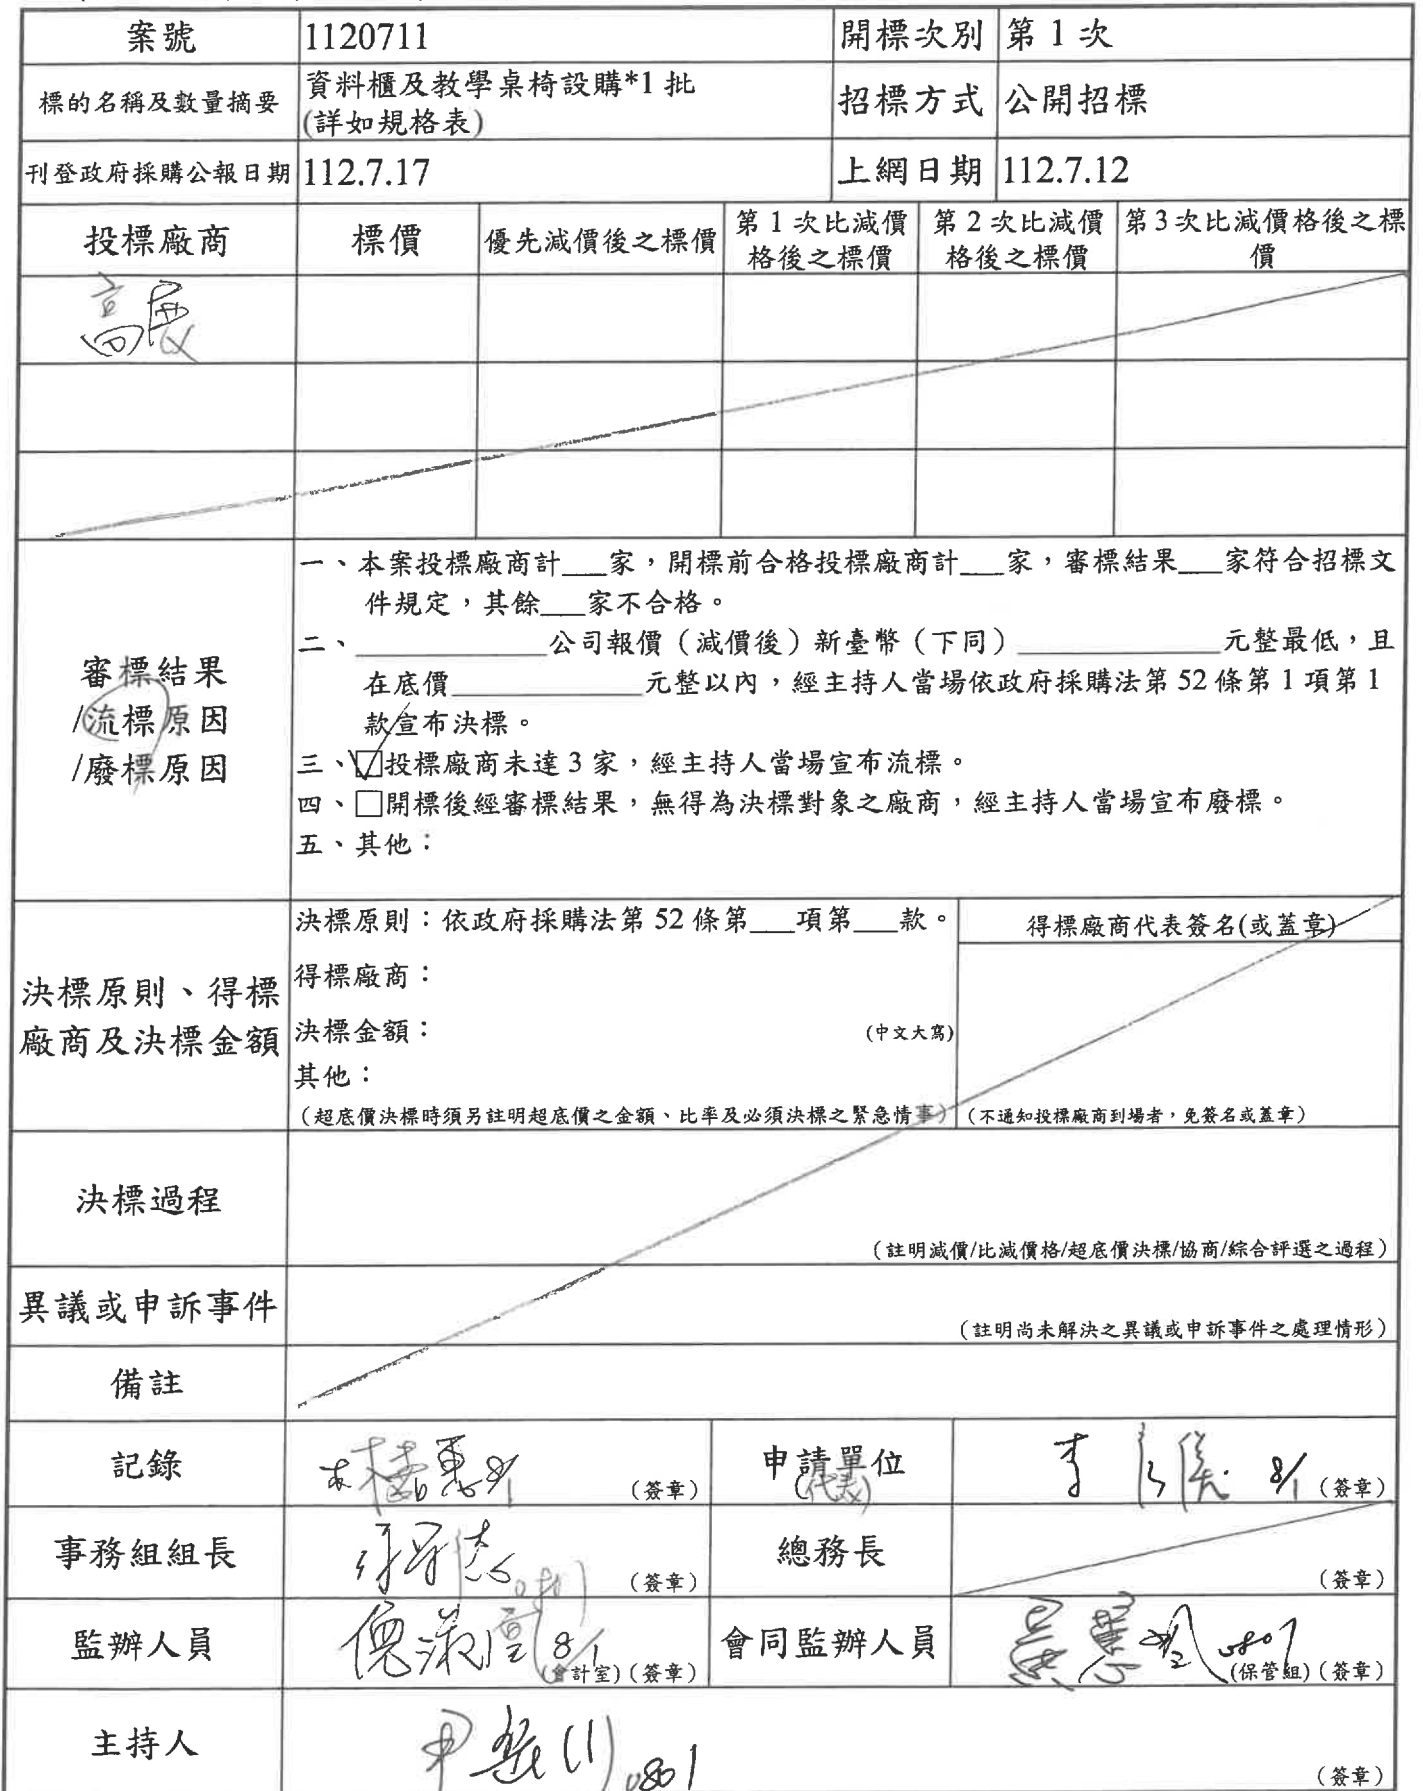 案號 1120711 開標次別 第 1 次
標的名稱及數量摘要 資料櫃及教學桌椅設購*1 批
(詳如規格表)
招標方式 公開招標
刊登政府採購公報日期 112.7.17 上網日期 112.7.12
投標廠商 標價 優先減價後之標價 第 1 次比減價格後之標價 第 2 次比減價格後之標價 第 3 次比減價格後之標價
高展
審標結果
/流標原因
/廢標原因
一、本案投標廠商計___家，開標前合格投標廠商計___家，審標結果___家符合招標文
件規定，其餘___家不合格。
二、_____________公司報價（減價後）新臺幣（下同）______________元整最低，且
在底價_____________元整以內，經主持人當場依政府採購法第 52 條第 1 項第 1
款宣布決標。
三、☑投標廠商未達 3 家，經主持人當場宣布流標。
四、□開標後經審標結果，無得為決標對象之廠商，經主持人當場宣布廢標。
五、其他：
決標原則、得標
廠商及決標金額
決標原則：依政府採購法第 52 條第___項第___款。
得標廠商：
決標金額： (中文大寫)
其他：
（超底價決標時須另註明超底價之金額、比率及必須決標之緊急情事）
得標廠商代表簽名(或蓋章)
（不通知投標廠商到場者，免簽名或蓋章）
決標過程
（註明減價/比減價格/超底價決標/協商/綜合評選之過程）
異議或申訴事件
（註明尚未解決之異議或申訴事件之處理情形）
備註
記錄 8/1 （簽章） 申請單位 (代表) 李 8/1 （簽章）
事務組組長 （簽章） 總務長 （簽章）
監辦人員 8/1 (會計室)（簽章） 會同監辦人員 0801 (保管組)（簽章）
主持人 0801 （簽章）